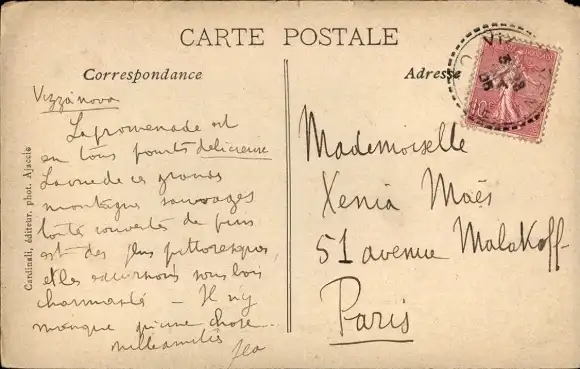 CARTE POSTALE
Correspondance
Adresse
Vizzanova
La promenade est
en tous points délicieuse
La vue de ces grandes
montagnes sauvages
toute couvertes de pins
est des plus pittoresques,
et les excursions sous bois
charmantes – Il n'y
manque qu'une chose..
mille amitiés
Mademoiselle
Xenia Maës
51 avenue Malakoff
Paris
Cardinali, éditeur, phot. Ajaccio
10